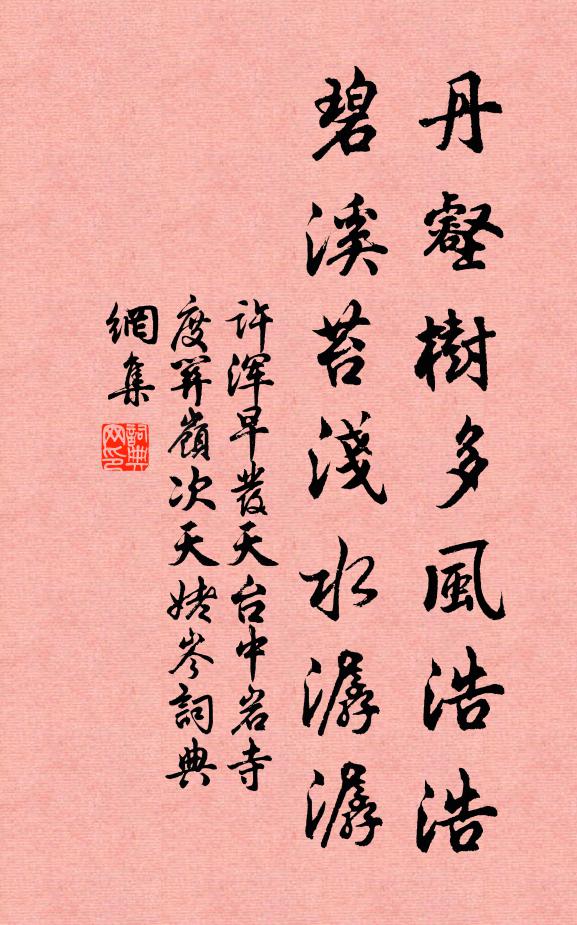 丹壑樹多風浩浩
碧溪苔淺水潺潺
許渾早發天台中岩寺
度關嶺次天姥岑詞典
網集
詞典
网印